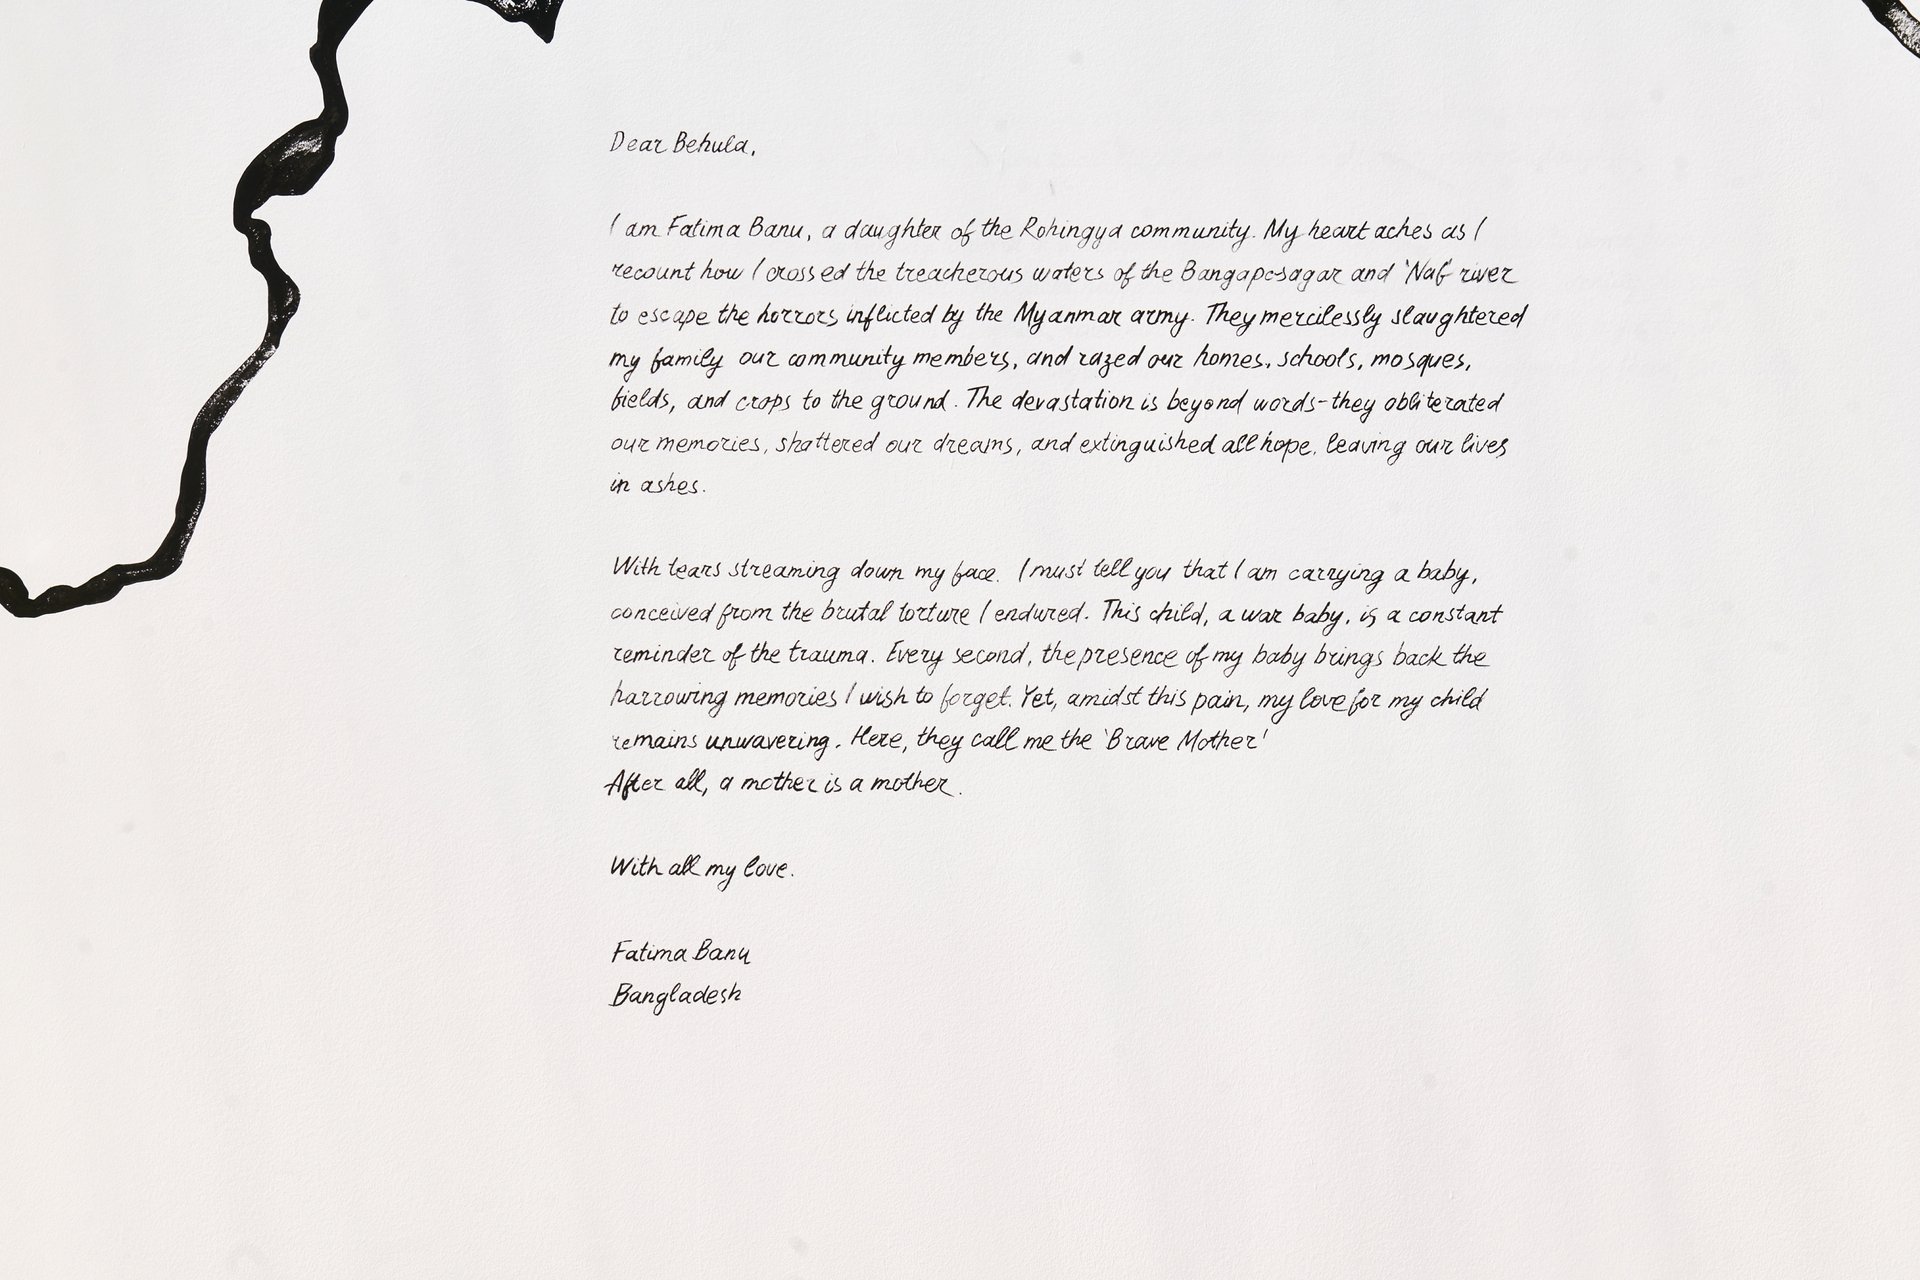 Dear Behula,
I am Fatima Banu, a daughter of the Rohingya community. My heart aches as I
recount how I crossed the treacherous waters of the Bangapo-sagar and 'Naf' river
to escape the horrors inflicted by the Myanmar army. They mercilessly slaughtered
my family our community members, and razed our homes, schools, mosques,
fields, and crops to the ground. The devastation is beyond words-they obliterated
our memories, shattered our dreams, and extinguished all hope, leaving our lives
in ashes.
With tears streaming down my face. I must tell you that I am carrying a baby,
conceived from the brutal torture I endured. This child, a war baby, is a constant
reminder of the trauma. Every second, the presence of my baby brings back the
harrowing memories I wish to forget. Yet, amidst this pain, my love for my child
remains unwavering. Here, they call me the 'Brave Mother'
After all, a mother is a mother.
With all my love.
Fatima Banu
Bangladesh